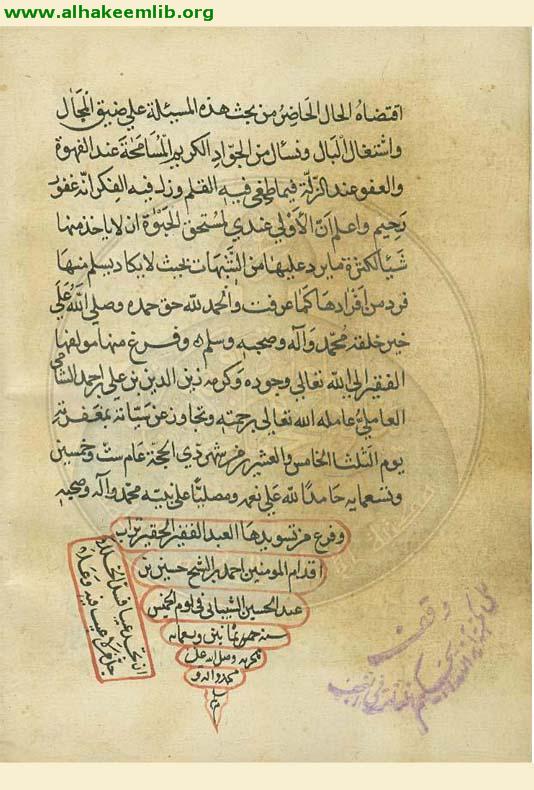 www.alhakeemlib.org
اقتضاه الحال الحاضر من بحث هذه المسئلة على ضيق المجال
واشتغال البال ونسال من الجواد الكريم المسامحة عند الهفوة
والعفو عند الزلة فيما طغى فيه القلم وزل فيه الفكر انه غفور
رحيم واعلم ان الأولى عندي لمستحق الحبوة ان لا ياخذ منها
شيأ لكثرة ما يرد عليها من الشبهات بحيث لا يكاد يسلم منها
فرد من افرادها كما عرفت والحمد لله حق حمده وصلى الله على
خير خلقه محمد وآله وصحبه وسلم وفرغ منها مولفها
الفقير الى الله تعالى وجوده وكرمه زين الدين بن علي بن احمد الشامي
العاملي عامله الله تعالى برحمته وتجاوز عن سيآته بمغفرته
يوم الثلثا الخامس والعشرين من شهر ذي الحجة عام ست وخمسين
وتسعمايه حامدا لله على نعمه ومصليا على نبيه محمد وآله وصحبه
وفرغ من تسويدها العبد الفقير الحقير تراب
اقدام المومنين احمد بن الشيخ حسين بن
عبد الحسين الشيباني في يوم الخميس
سنة
وصلى الله على
محمد واله و
سلم
ان تجد عيبا فسد الخللا
جل من لا عيب فيه وعلا
وقف